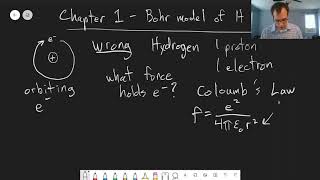 Chapter 1 - Bohr model of H
e⁻
+
Wrong Hydrogen 1 proton
1 electron
what force
holds e⁻?
orbiting
e⁻
Coloumb's Law
f = e² / 4πε₀r²